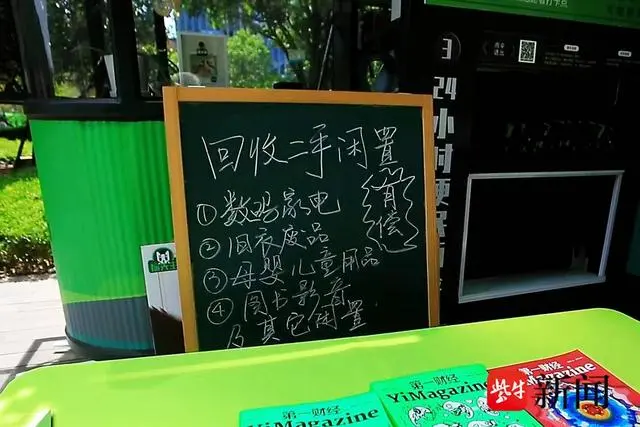 回收二手闲置
有偿
①数码家电
②旧衣废品
③母婴儿童用品
④图书影音
及其它闲置
3
24小时便民
第一财经
YiMagazine
第一财经
YiMagazine
第一财经
YiMagazine
紫牛新闻